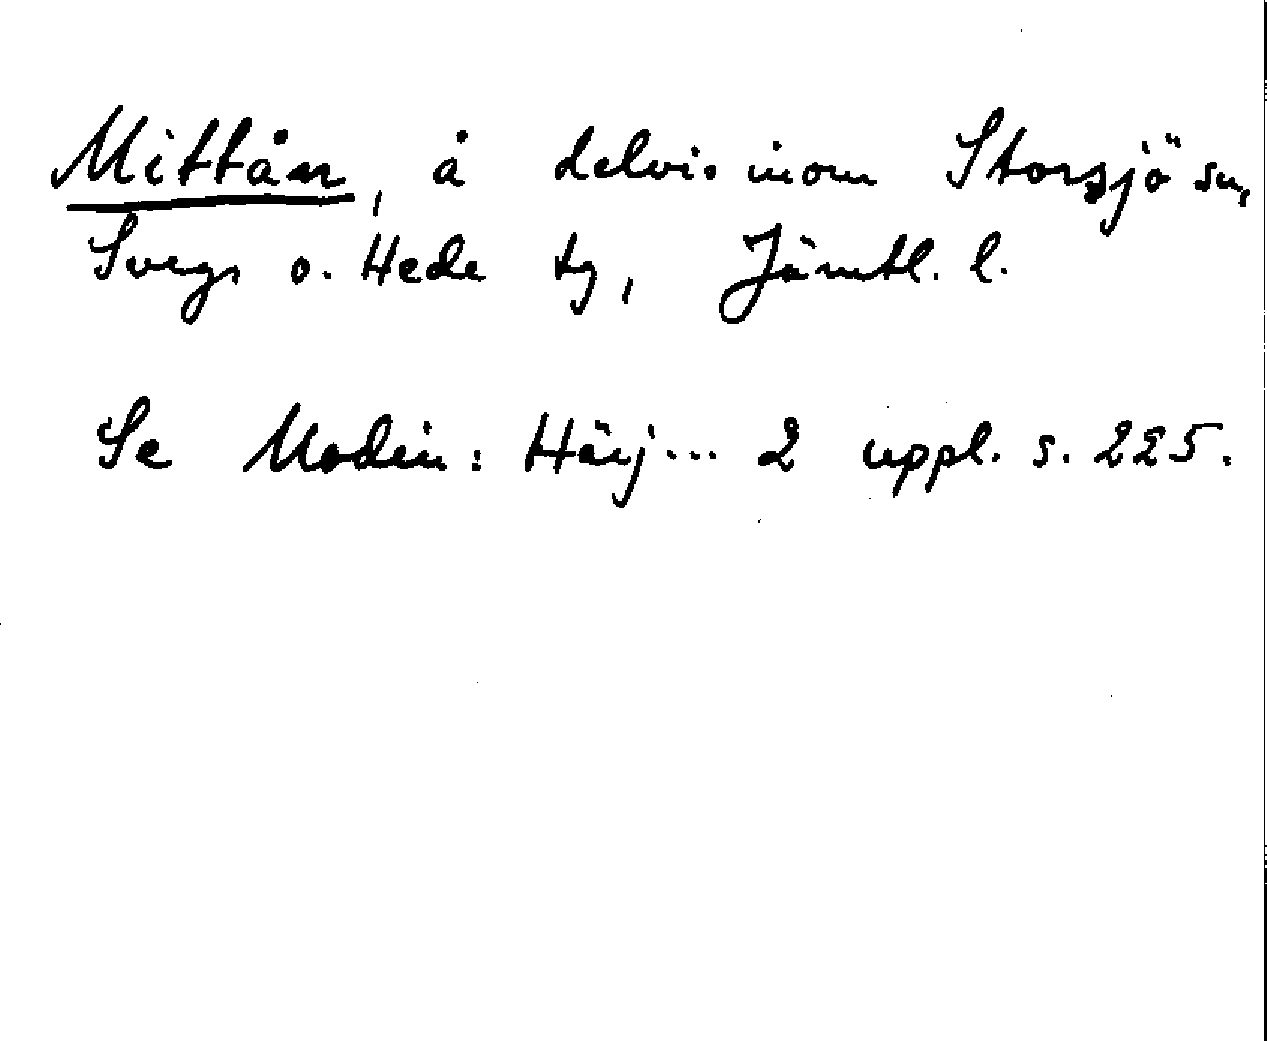 Mittån, å delvis inom Storsjö sn,
Svegs o. Hede tg, Jämtl. l.
Se Modin: Härj... 2 uppl. s. 225.